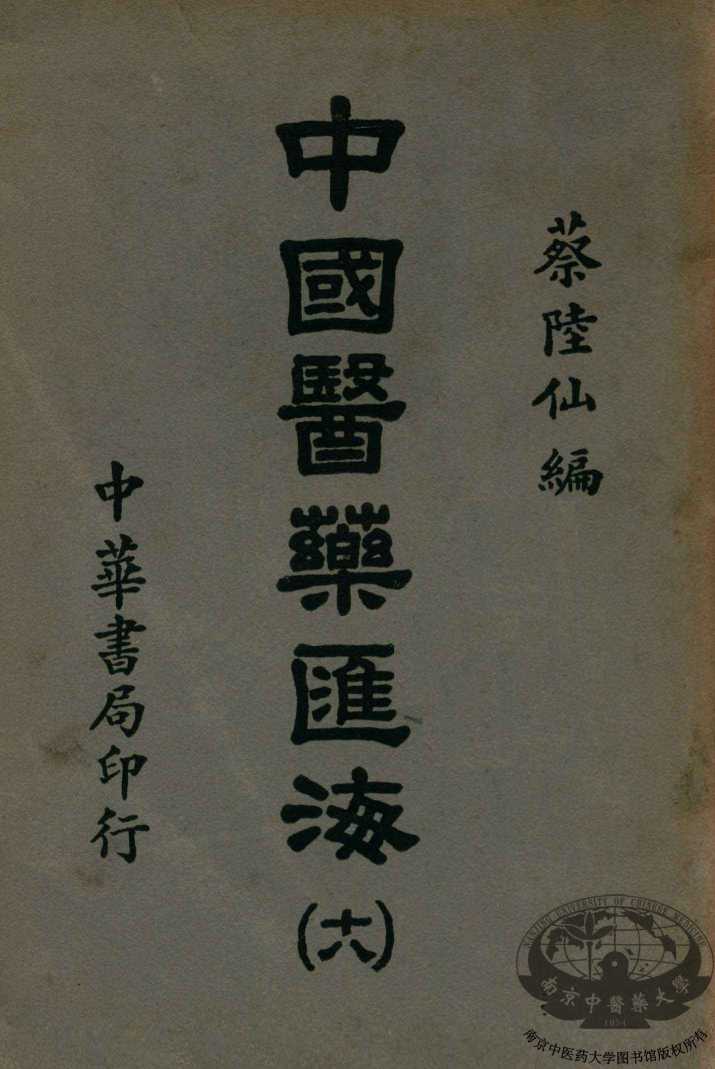 蔡陸仙編
中國醫藥匯海(十六)
中華書局印行
NANJING UNIVERSITY OF CHINESE MEDICINE
南京中醫藥大學
1954
南京中医药大学图书馆版权所有